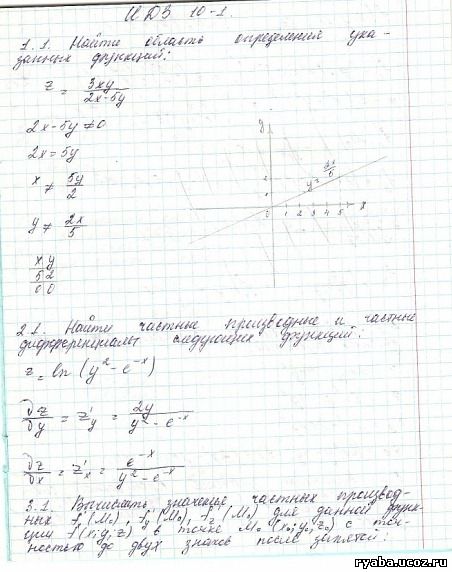 ИДЗ 10-1.
1.1. Найти область определения ука-
занных функций:
z = 3xy / 2x-5y
2x-5y≠0
2x=5y
x ≠ 5y / 2
y ≠ 2x / 5
x y
5 2
0 0
y
y= 2x / 5
0 1 2 3 4 5 x
2.1. Найти частные производные и частные
дифференциалы следующих функций:
z = ln (y² - e^-x)
∂z/∂y = z'y = 2y / y² - e^-x
∂z/∂x = z'x = e^-x / y² - e^-x
3.1. Вычислить значение частных производ-
ных f'x(M₀), f'y(M₀), f'z(M₀) для данной функ-
ции f(x;y;z) в точке M₀(x₀;y₀;z₀) с точ-
ностью до двух знаков после запятой:
ryaba.ucoz.ru